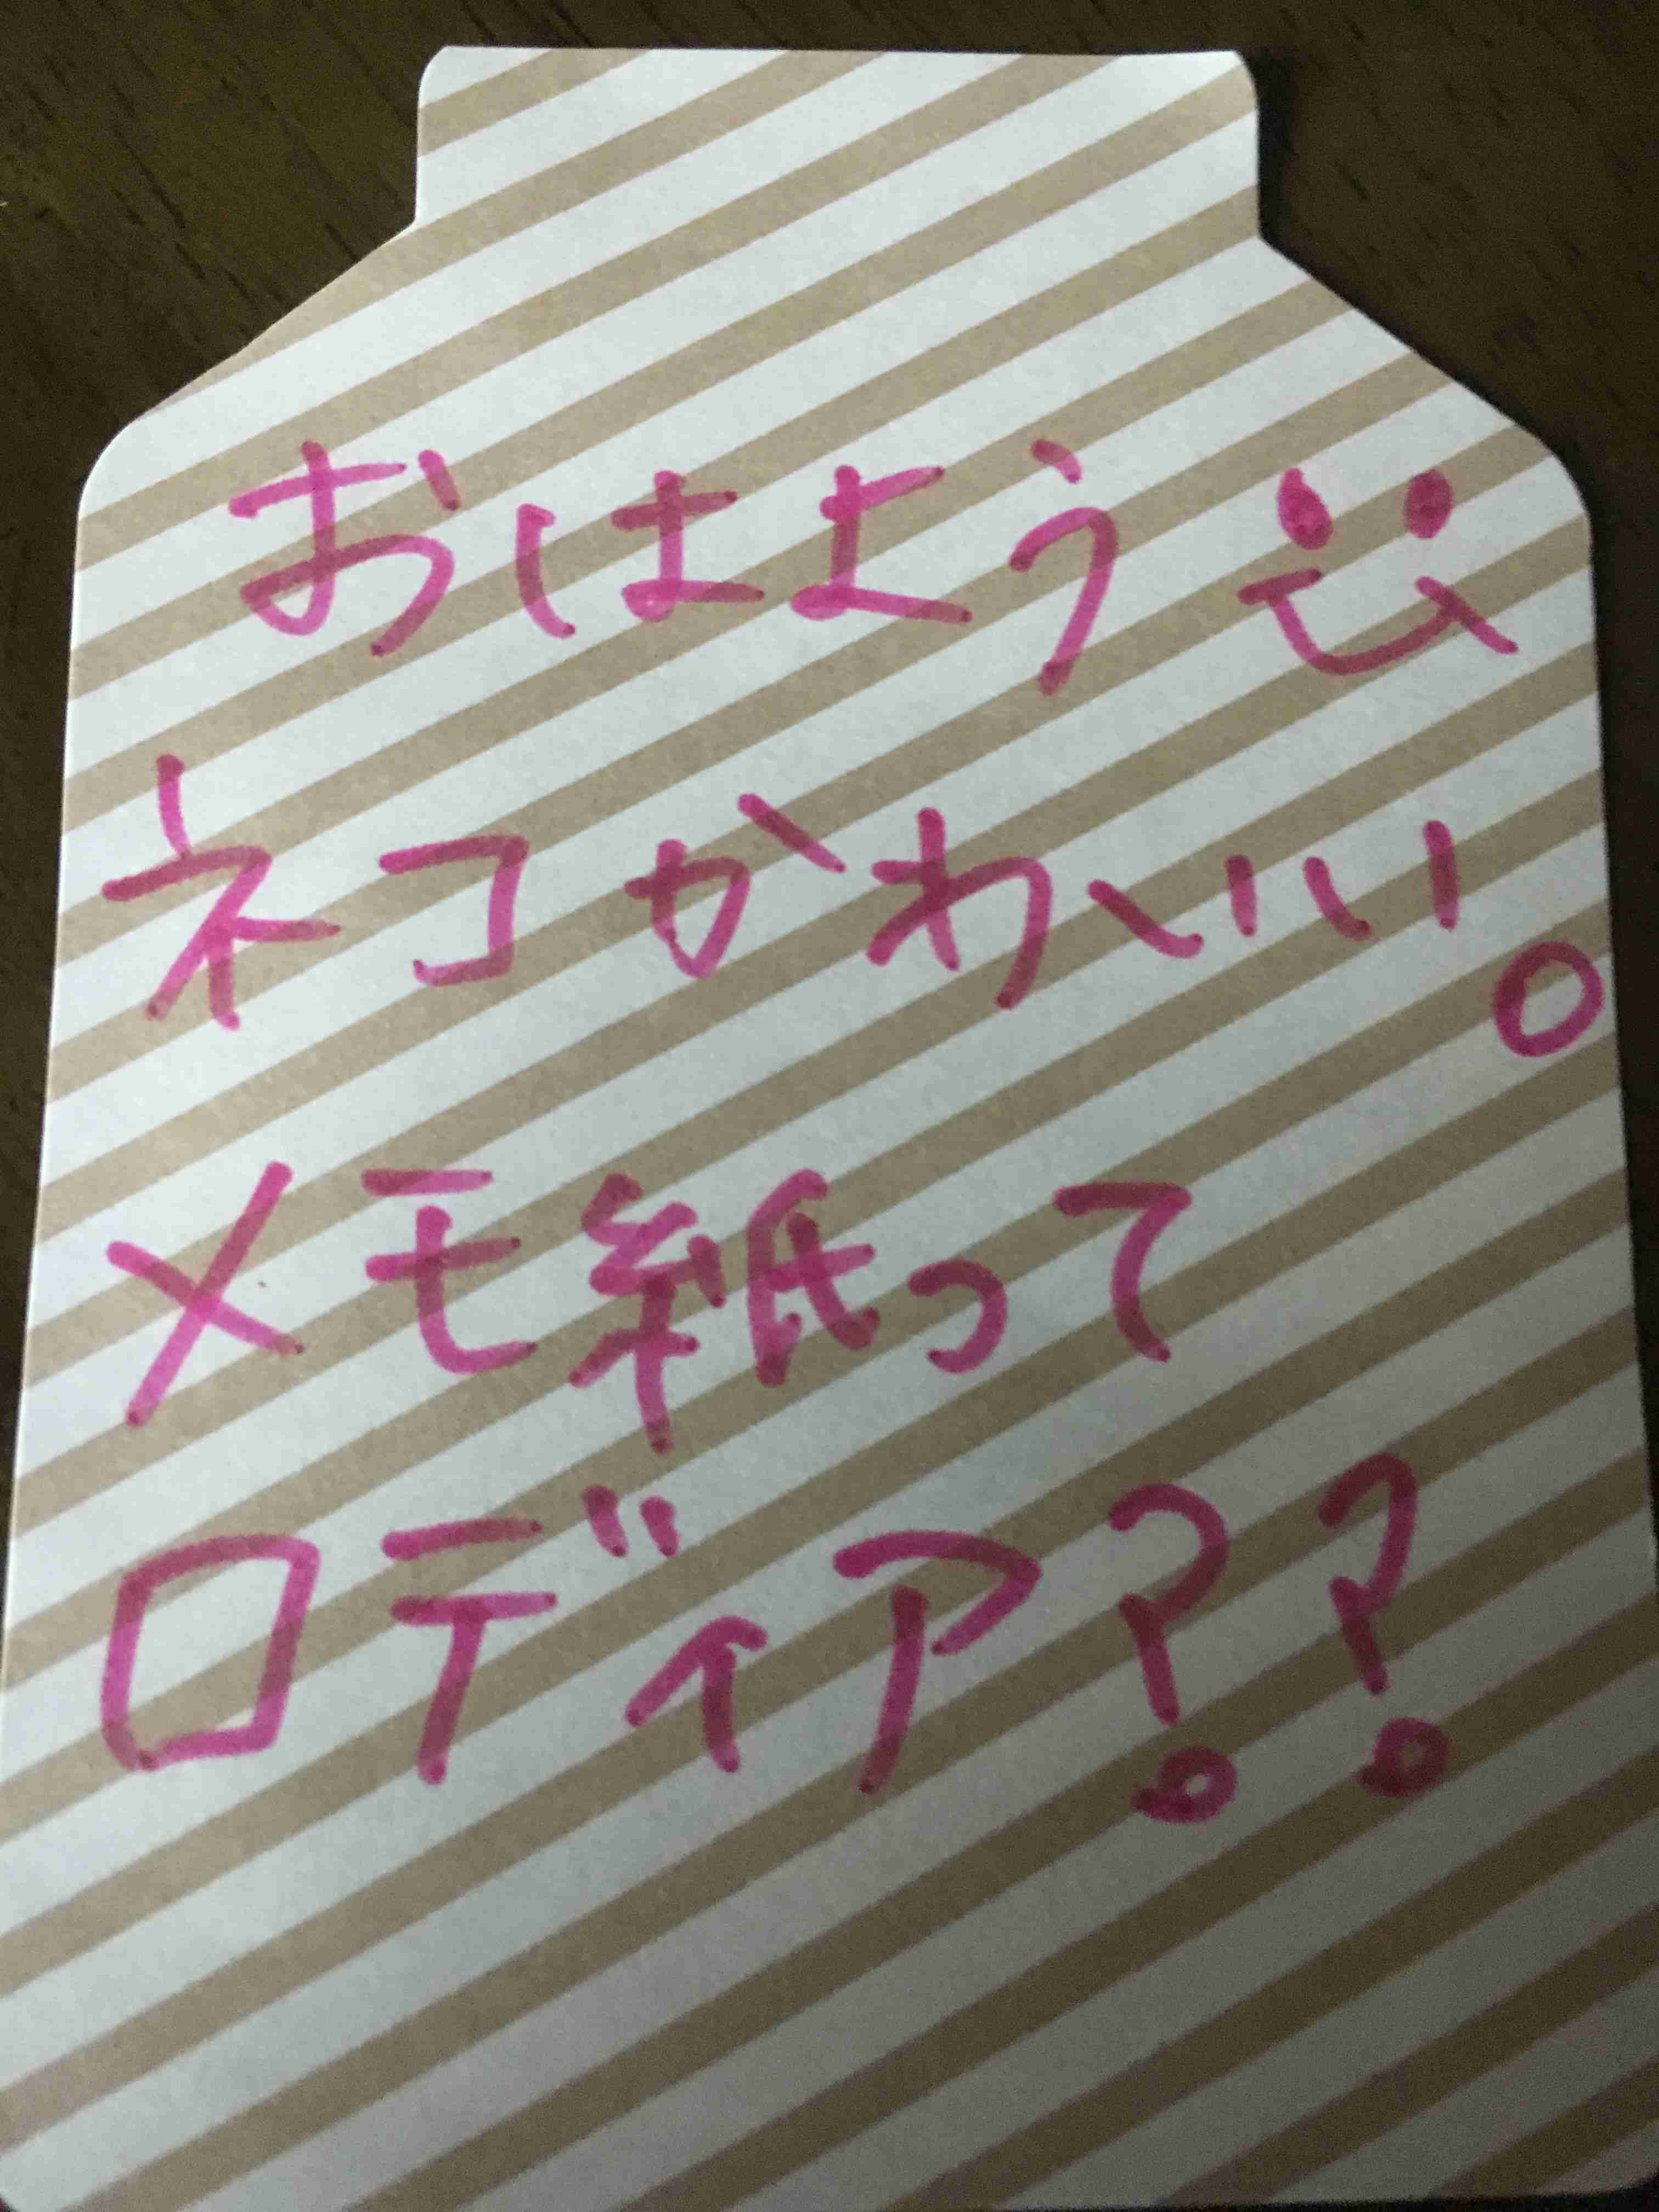 おはよう
ネコかわいい。
メモ紙って
ロディア??